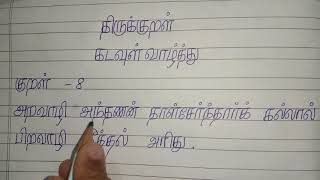 திருக்குறள்
கடவுள் வாழ்த்து
குறள் - 8
அறவாழி அந்தணன் தாள்சேர்ந்தார்க் கல்லால்
பிறவாழி அரிது.